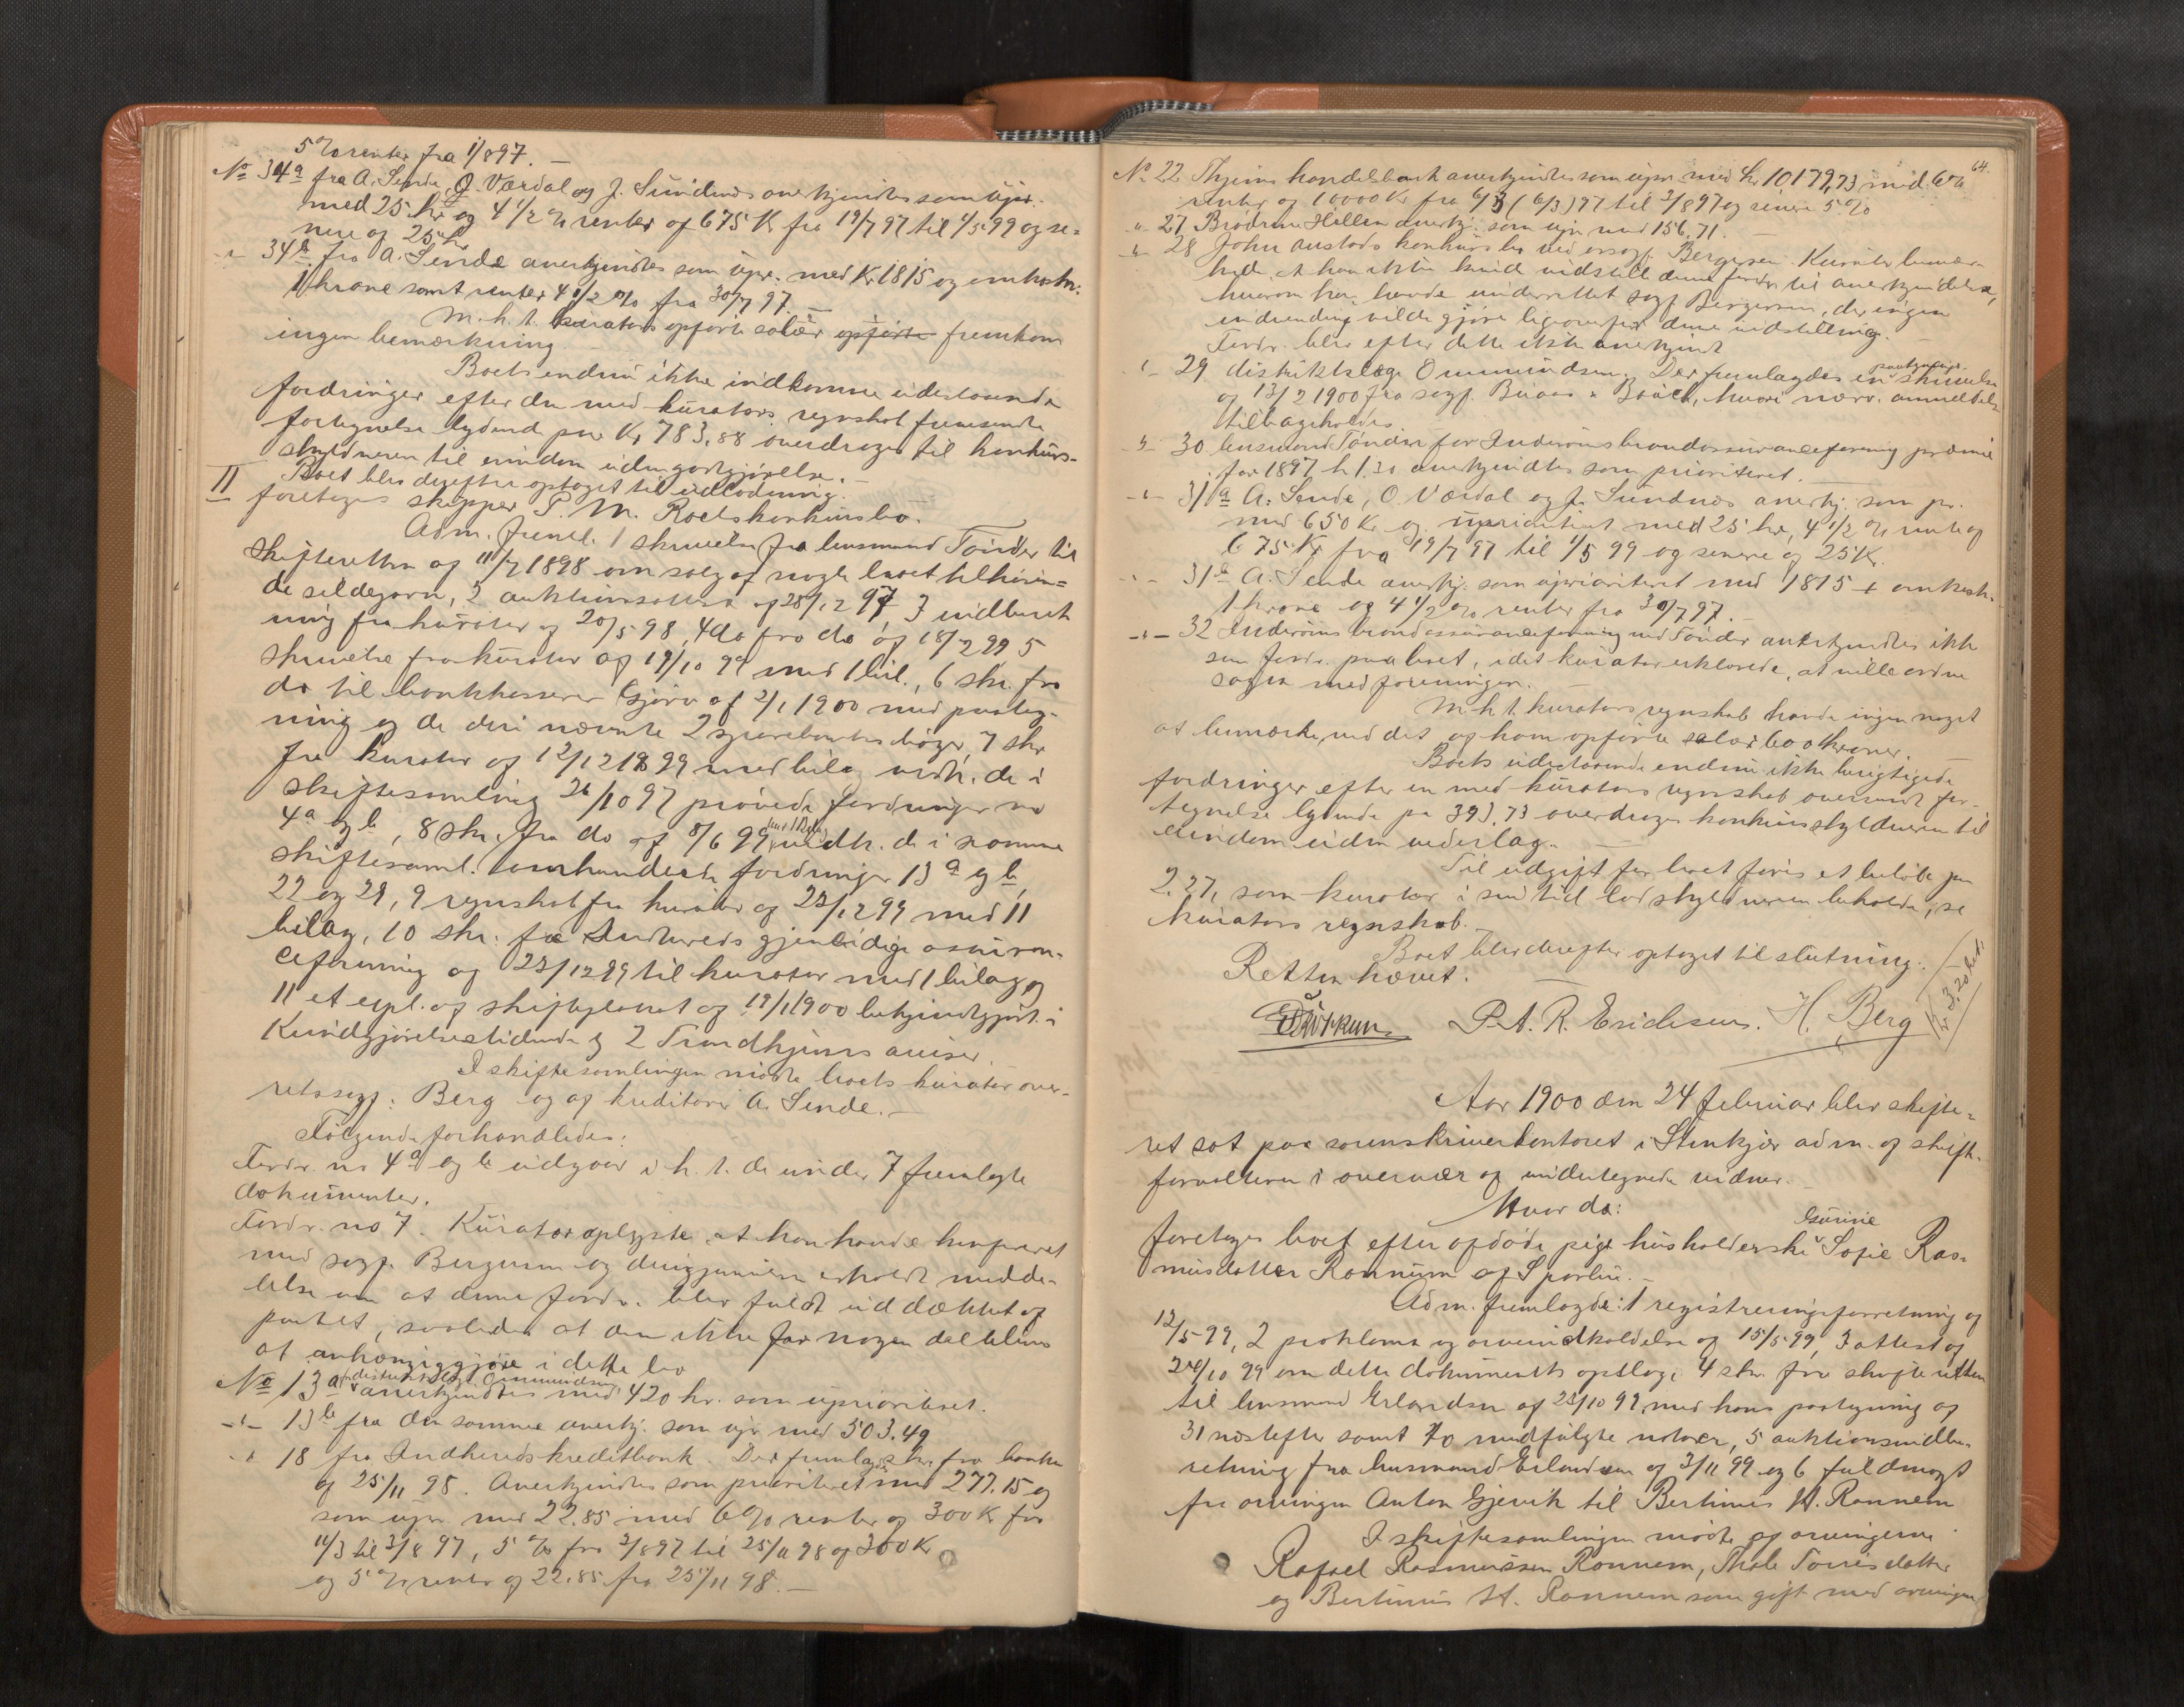 5 % renter fra 1/8 97. —
No 34a fra A. Sende, O. Værdal og J. Sundnes anerkjendtes som upr.
med 25 kr og 4 1/2 % renter af 675 Kr fra 19/7 97 til 1/5 99 og se=
nere af 25 kr
-"- 34b fra A. Sende anerkjendtes som upr. med Kr 1815 og omkostn.
1 krone samt renter 4 1/2 % fra 30/7 97. —
M. h. t. kurators opførte salær opførte fremkom
ingen bemærkning.
Boets endnu ikke indkomne udestaaende
fordringer efter den med kurators regnskab fremsendte
fortegnelse lydende paa Kr 783,88 overdroges til konkurs-
skyldneren til eiendom uden godtgjørelse. —
Boet blev derefter optaget til udlodning.
II foretoges skipper P. M. Roels konkursbo.
Adm. freml. 1 skrivelse fra lensmand Tønder til
skifteretten af 11/7 1898 om salg af nogle boet tilhøren=
de sildegarn, 2 auktionsattest af 28/12 97 3 indberet
ning fra kurator af 20/5 98, 4 do fra do af 18/2 99 5
skrivelse fra kurator af 19/10 99 med 1 bil., 6 skr. fra
do til bankkasserer Gjørv af 2/1 1900 med paateg-
ning og de deri nævnte 2 sparebankbøger, 7 skr
fra kurator af 12/12 1899 med bilag vedk. de i
skiftesamling 26/10 97 prøvede fordringer no
4a og b, 8 skr. fra do af 8/6 99 med 1 bilag vedk. de i samme
skiftesaml. omhandlede fordringer 13a og b,
22 og 29, 9 regnskab fra kurator af 22/12 99 med 11
bilag, 10 skr. fra Indherreds gjensidige assuran-
ceforening af 23/12 99 til kurator med 1 bilag og
11 et expl. af skifteplakat af 19/1 1900 bekjendtgjort i
Kundgjørelsestidende og 2 Trondhjems aviser.
I skiftesamlingen mødte boets kurator over-
retssagf. Berg og af kreditorer A. Sende. —
Følgende forhandledes:
Fordr. no 4a og b udgaar i h. t. de under 7 fremlagte
dokumenter.
Fordr. no 7. Kurator oplyste at han havde konfereret
med sagf. Bergersen og derigjennem erholdt medde-
lelse om at denne fordr. blev fuldt ud dækket af
pantet, saaledes at den ikke for nogen del bliver
at anhængiggjøre i dette bo
No 13a fra distriktslæge Ommundsen anerkjendtes med 420 kr. som uprioriteret.
-"- 13b fra den samme anerkj. som upr med 503.49
-"- 18 fra Indherreds kreditbank. Der fremlagdes skr. fra banken
af 25/11 98. Anerkjendtes som prioriteret med 277.15 og
som upr. med 22.85 med 6 % renter af 300 Kr fra
11/3 til 3/8 97, 5 % fra 3/8 97 til 25/11 98 af 300 Kr
og 5 % renter af 22.85 fra 25/11 98. —
64.
No 22 Thjems handelsbank anerkjendtes som upr. med kr 10179,73 med 6 %
renter af 10000 Kr fra 6/3 (6/3) 97 til 3/8 97 og senere 5 %
-"- 27 Brødrene Hellem anerkj. som upr med 156.71. —
-"- 28 John Austads konkursbo ved orsagf. Bergersen. Kurator bemær-
kede, at han ikke havde indstillet denne fordr. til anerkjendelse,
hvorom han havde underrettet sagf. Bergersen, der ingen
indvending vilde gjøre ligeoverfor denne indstilling.
Fordr. blev efter dette ikke anerkjendt
-"- 29 distriktslæge Ommundsen. Der fremlagdes en paategnings skrivelse
af 13/2 1900 fra sagf. Buaas & Brück, hvori nærv. anmeldelse
tilbageholdes
-"- 30 lensmand Tønder for Inderøens brandassuranceforening præmie
for 1897 kr 1.30 anerkjendtes som prioriteret. —
-"- 31a A. Sende, O. Værdal og J. Sundnes anerkj. som pr.
med 650 Kr og uprioriteret med 25 kr, 4 1/2 % rente af
675 Kr fra 19/7 97 til 1/5 99 og senere af 25 Kr.
-"- 31b A. Sende anerkj. som uprioriteret med 1815 + omkostn.
1 krone og 4 1/2 % renter fra 30/7 97. —
-"- 32 Inderøens brandassuranceforening ved Tønder anerkjendtes ikke
som fordr. paa boet, idet kurator erklærede, at ville ordne
sagen med foreningen.
M. h. t. kurators regnskab havde ingen noget
at bemærke ved det af ham opførte salær 600 kroner.
Boets udestaaende endnu ikke berigtigede
fordringer efter en med kurators regnskab oversendt for-
tegnelse lydende paa 393.73 overdroges konkursskyldneren til
eiendom uden vederlag. —
Til udgift for boet føres et beløb paa
2.27, som kurator i sin tid lod skyldneren beholde, se
kurators regnskab. —
Boet blev derefter optaget til slutning.
Retten hævet.
P. A. R. Erichsen. H. Berg
Aar 1900 den 24 februar blev skifte=
ret sat paa sorenskriverkontoret i Stenkjær adm. af skifte-
forvalteren i overvær af undertegnede vidner.
Hvor da:
foretoges boet efter afdøde pige husholderske Gurine Sofie Ras-
musdatter Rønnum af Sparbu. —
Adm. fremlagde: 1 registreringsforretning af
12/5 99, 2 proklama og arveindkaldelse af 15/5 99, 3 attest af
24/10 99 om dette dokuments opslag, 4 skr. fra skifteretten
til lensmand Erlandsen af 28/10 99 med hans paategning af
31 næstefter samt 70 medfulgte notaer, 5 auktionsindbe-
retning fra lensmand Erlandsen af 3/11 99 og 6 fuldmagt
fra arvingen Anton Gjervik til Bertinus H. Rønnem
I skiftesamlingen mødte af arvingerne
Rafael Rasmussen Rønnem, Thale Torrisdatter
og Bertinus H. Rønnem som gift med arvingen